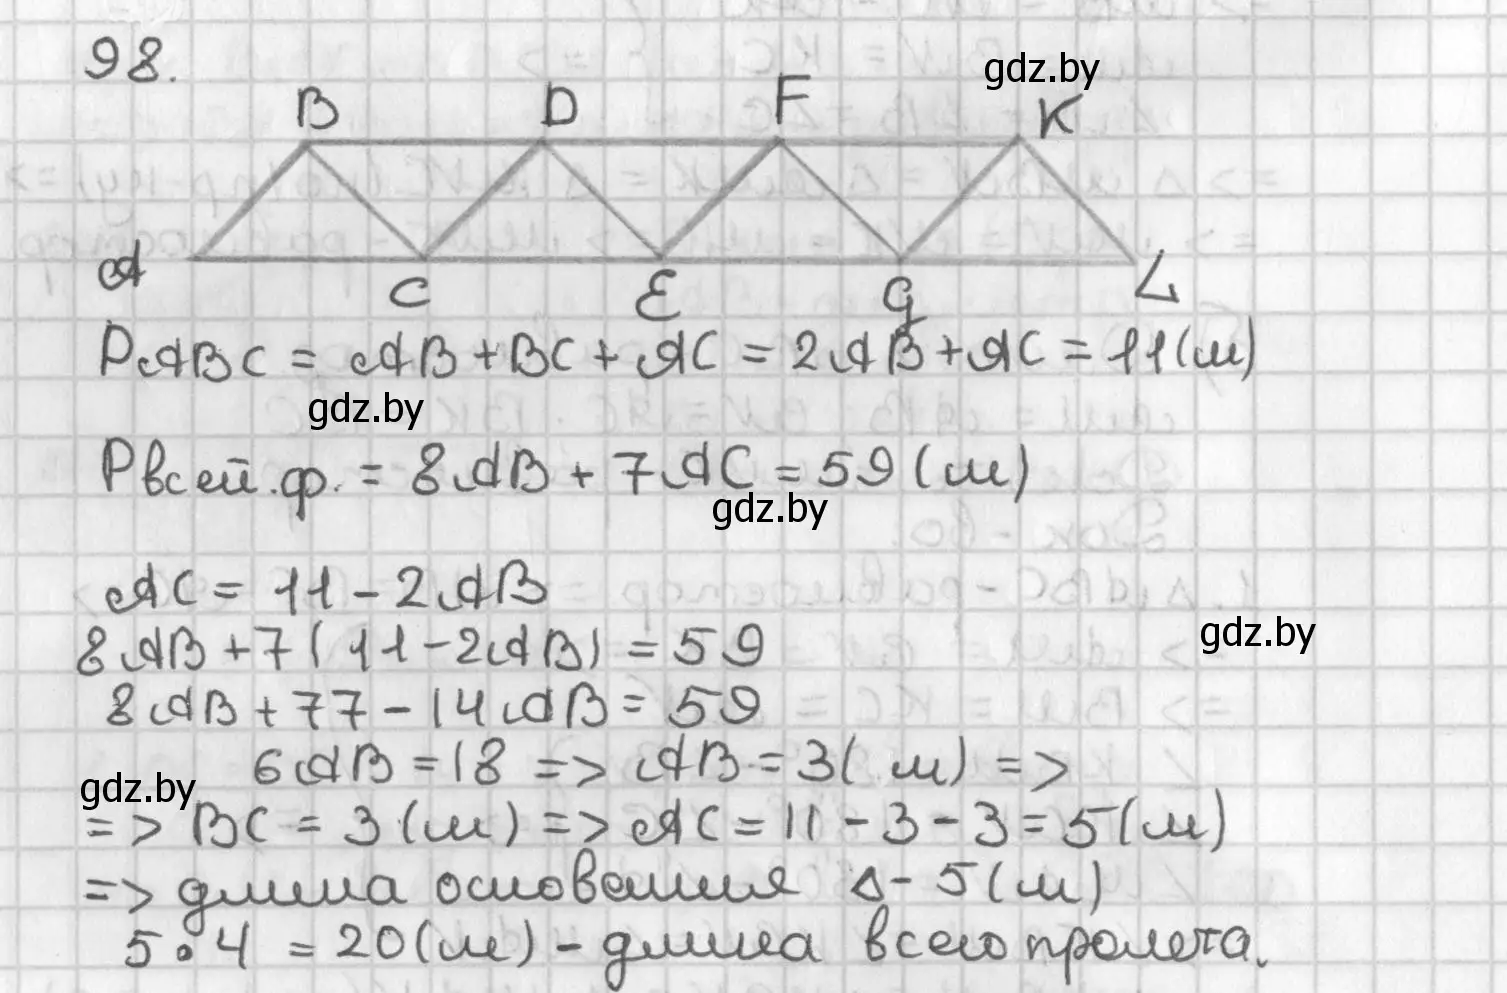 98.
gdz.by
B D F K
A C E G L
PABC = AB + BC + AC = 2AB + AC = 11 (м)
gdz.by
Pвсей.ф. = 8AB + 7AC = 59 (м)
gdz.by
AC = 11 - 2AB
8AB + 7(11 - 2AB) = 59
gdz.by
8AB + 77 - 14AB = 59
6AB = 18 => AB = 3 (м) =>
gdz.by
=> BC = 3 (м) => AC = 11 - 3 - 3 = 5 (м)
=> длина основания Δ - 5 (м)
5 · 4 = 20 (м) - длина всего пролета.